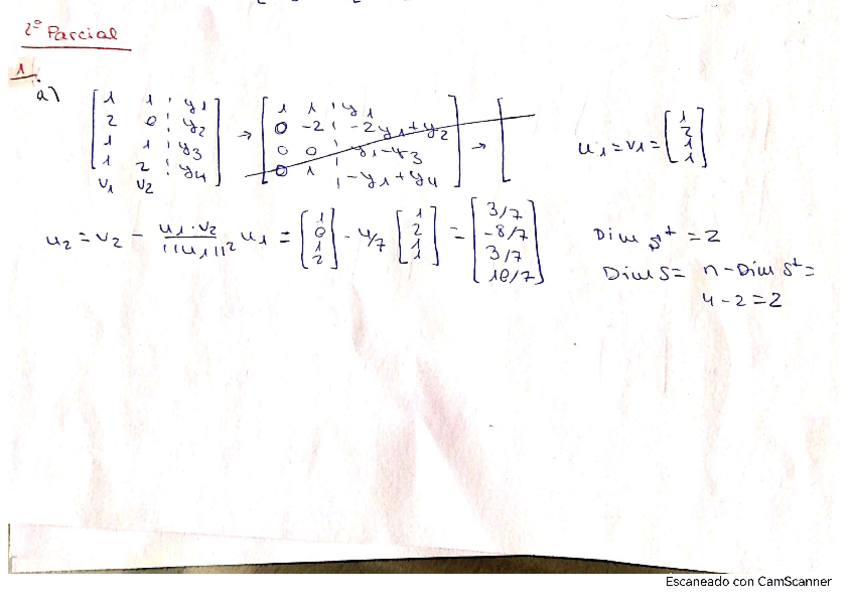 2º Parcial
1.
a) [1 1 ¦ y1; 2 0 ¦ y2; 1 1 ¦ y3; 1 2 ¦ y4] → [1 1 ¦ y1; 0 -2 ¦ -2y1+y2; 0 0 ¦ y1-y3; 0 1 ¦ -y1+y4] → [ u1 = v1 = [1; 2; 1; 1]
v1 v2
u2 = v2 - u1·v2/||u1||² u1 = [1; 0; 1; 2] - 4/7 [1; 2; 1; 1] = [3/7; -8/7; 3/7; 10/7] Dim S⊥ = 2
Dim S = n - Dim S⊥ =
4 - 2 = 2
Escaneado con CamScanner